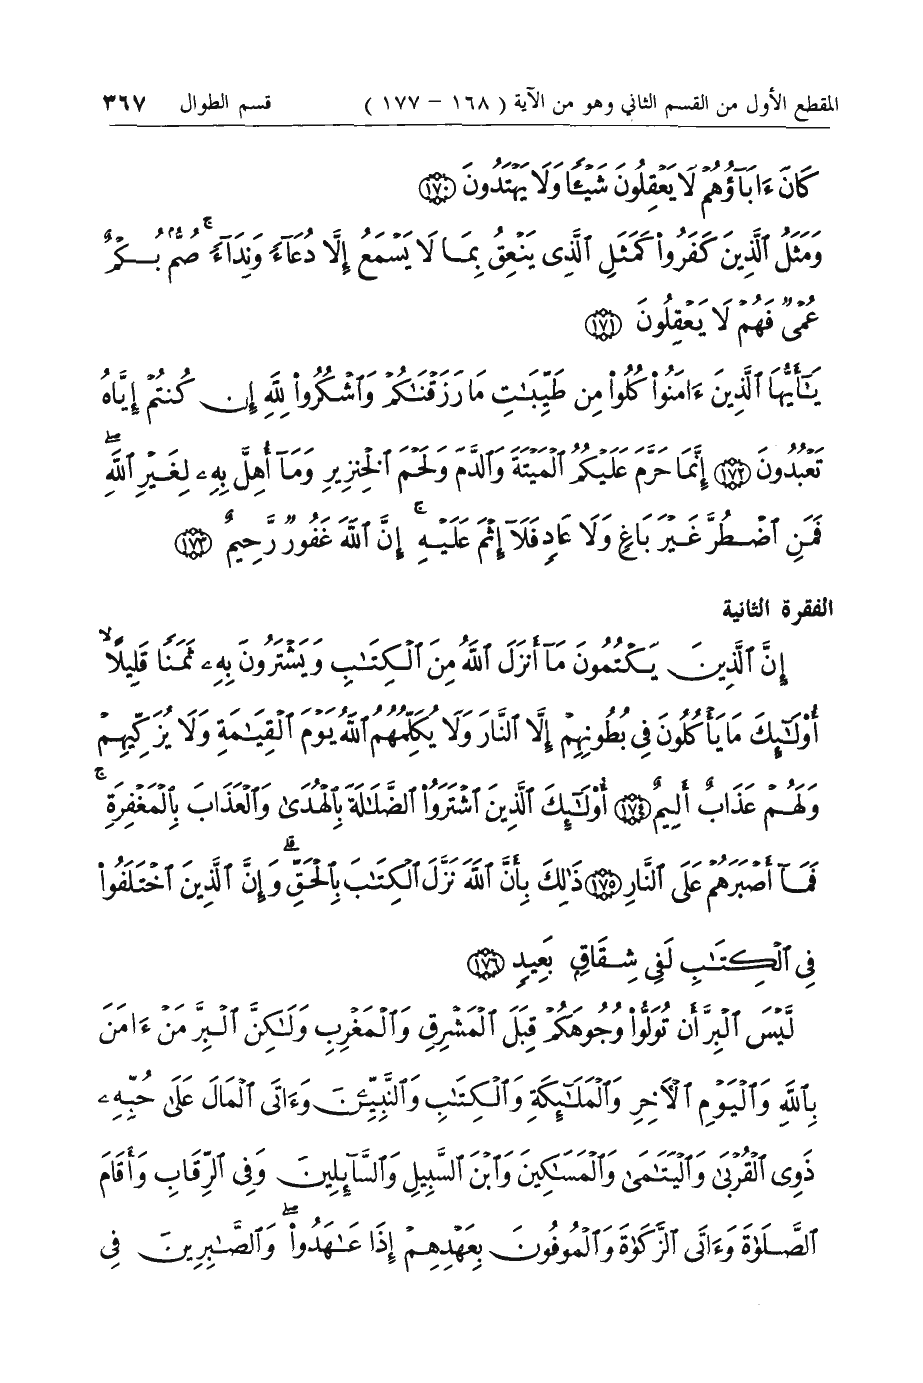 المقطع الأول من القسم الثاني وهو من الآية ( ١٦٨ – ١٧٧ ) قسم الطوال ٣٦٧
كَانَ ءَابَآؤُهُمْ لَا يَعْقِلُونَ شَيْـًٔا وَلَا يَهْتَدُونَ ١٧٠
وَمَثَلُ ٱلَّذِينَ كَفَرُوا۟ كَمَثَلِ ٱلَّذِى يَنْعِقُ بِمَا لَا يَسْمَعُ إِلَّا دُعَآءً وَنِدَآءً ۚ صُمٌّۢ بُكْمٌ
عُمْىٌ فَهُمْ لَا يَعْقِلُونَ ١٧١
يَـٰٓأَيُّهَا ٱلَّذِينَ ءَامَنُوا۟ كُلُوا۟ مِن طَيِّبَـٰتِ مَا رَزَقْنَـٰكُمْ وَٱشْكُرُوا۟ لِلَّهِ إِن كُنتُمْ إِيَّاهُ
تَعْبُدُونَ ١٧٢ إِنَّمَا حَرَّمَ عَلَيْكُمُ ٱلْمَيْتَةَ وَٱلدَّمَ وَلَحْمَ ٱلْخِنزِيرِ وَمَآ أُهِلَّ بِهِۦ لِغَيْرِ ٱللَّهِ ۖ
فَمَنِ ٱضْطُرَّ غَيْرَ بَاغٍ وَلَا عَادٍ فَلَآ إِثْمَ عَلَيْهِ ۚ إِنَّ ٱللَّهَ غَفُورٌ رَّحِيمٌ ١٧٣
الفقرة الثانية
إِنَّ ٱلَّذِينَ يَكْتُمُونَ مَآ أَنزَلَ ٱللَّهُ مِنَ ٱلْكِتَـٰبِ وَيَشْتَرُونَ بِهِۦ ثَمَنًا قَلِيلًا ۙ
أُو۟لَـٰٓئِكَ مَا يَأْكُلُونَ فِى بُطُونِهِمْ إِلَّا ٱلنَّارَ وَلَا يُكَلِّمُهُمُ ٱللَّهُ يَوْمَ ٱلْقِيَـٰمَةِ وَلَا يُزَكِّيهِمْ
وَلَهُمْ عَذَابٌ أَلِيمٌ ١٧٤ أُو۟لَـٰٓئِكَ ٱلَّذِينَ ٱشْتَرَوُا۟ ٱلضَّلَـٰلَةَ بِٱلْهُدَىٰ وَٱلْعَذَابَ بِٱلْمَغْفِرَةِ ۚ
فَمَآ أَصْبَرَهُمْ عَلَى ٱلنَّارِ ١٧٥ ذَٰلِكَ بِأَنَّ ٱللَّهَ نَزَّلَ ٱلْكِتَـٰبَ بِٱلْحَقِّ ۗ وَإِنَّ ٱلَّذِينَ ٱخْتَلَفُوا۟
فِى ٱلْكِتَـٰبِ لَفِى شِقَاقٍۭ بَعِيدٍ ١٧٦
لَّيْسَ ٱلْبِرَّ أَن تُوَلُّوا۟ وُجُوهَكُمْ قِبَلَ ٱلْمَشْرِقِ وَٱلْمَغْرِبِ وَلَـٰكِنَّ ٱلْبِرَّ مَنْ ءَامَنَ
بِٱللَّهِ وَٱلْيَوْمِ ٱلْـَٔاخِرِ وَٱلْمَلَـٰٓئِكَةِ وَٱلْكِتَـٰبِ وَٱلنَّبِيِّـۧنَ وَءَاتَى ٱلْمَالَ عَلَىٰ حُبِّهِۦ
ذَوِى ٱلْقُرْبَىٰ وَٱلْيَتَـٰمَىٰ وَٱلْمَسَـٰكِينَ وَٱبْنَ ٱلسَّبِيلِ وَٱلسَّآئِلِينَ وَفِى ٱلرِّقَابِ وَأَقَامَ
ٱلصَّلَوٰةَ وَءَاتَى ٱلزَّكَوٰةَ وَٱلْمُوفُونَ بِعَهْدِهِمْ إِذَا عَـٰهَدُوا۟ ۖ وَٱلصَّـٰبِرِينَ فِى